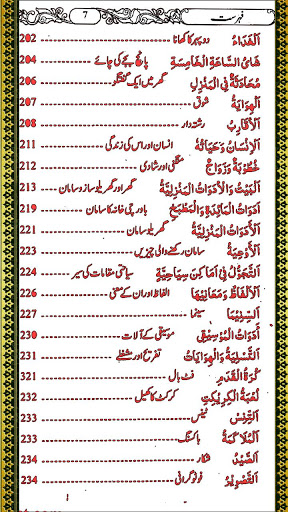 فہرست 7
اَلْغَدَاءُ دوپہر کا کھانا 202
شَايُ السَّاعَةِ الْخَامِسَةِ پانچ بجے کی چائے 204
مُحَادَثَةٌ فِي الْمَنْزِلِ گھر میں ایک گفتگو 206
اَلْهِوَايَةُ شوق 207
اَلْأَقَارِبُ رشتہ دار 208
اَلْإِنْسَانُ وَحَيَاتُهُ انسان اور اس کی زندگی 211
خُطُوْبَةٌ وَزَوَاجٌ منگنی اور شادی 212
اَلْبَيْتُ وَالْأَدَوَاتُ الْمَنْزِلِيَّةُ گھر اور گھریلو ساز و سامان 213
أَدَوَاتُ الْمَائِدَةِ وَالْمَطْبَخِ باورچی خانہ کا سامان 219
اَلْأَدَوَاتُ الْمَنْزِلِيَّةُ گھریلو سامان 221
اَلْأَوْعِيَةُ سامان رکھنے والی چیزیں 223
اَلتَّجَوُّلُ فِيْ أَمَاكِنَ سِيَاحِيَّةٍ سیاحتی مقامات کی سیر 224
اَلْأَلْفَاظُ وَمَعَانِيْهَا الفاظ اور ان کے معنی 226
اَلسِّيْنِمَا سینما 227
أَدَوَاتُ الْمُوْسِيْقٰى موسیقی کے آلات 230
اَلتَّسْلِيَةُ وَالْهِوَايَاتُ تفریح اور مشغلے 231
كُرَةُ الْقَدَمِ فٹ بال 321
لُعْبَةُ الْكِرِيْكِتْ کرکٹ کا کھیل 232
اَلتِّنِسُ ٹینس 233
اَلْمُلَاكَمَةُ باکسنگ 233
اَلصَّيْدُ شکار 234
اَلتَّصْوِيْرُ فوٹوگرافی 234